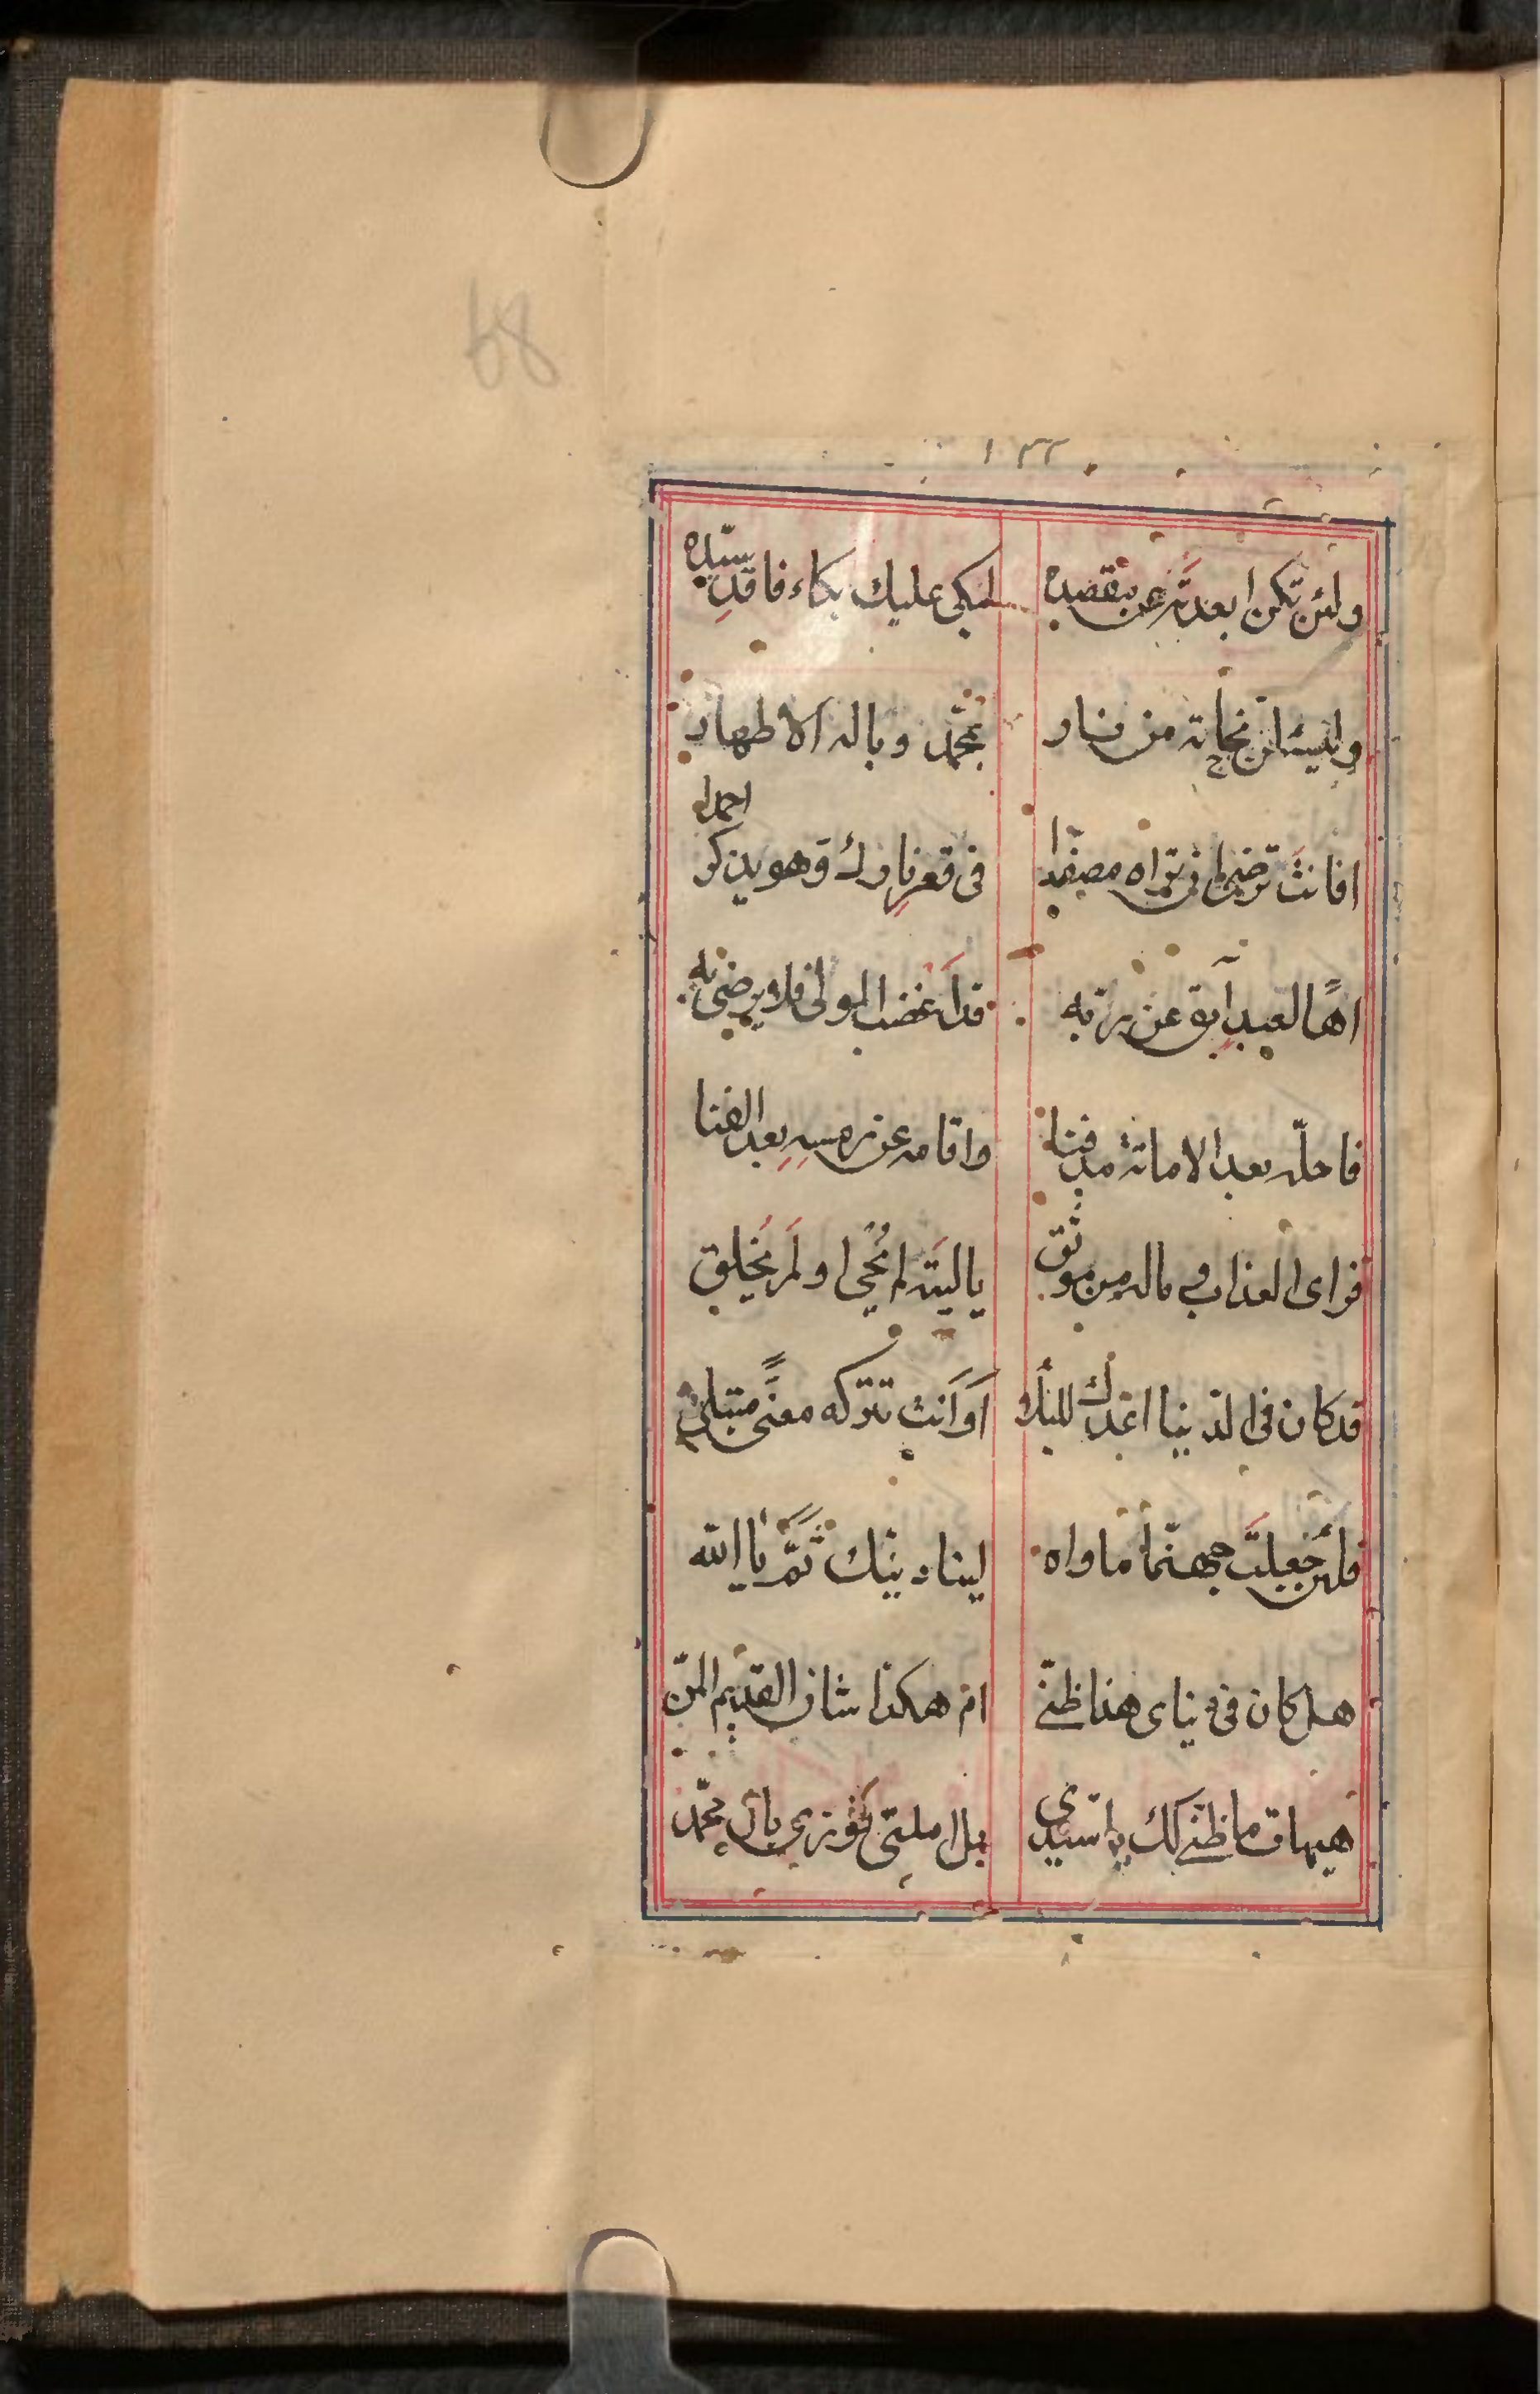 68
١٣٢
ولئن تكن ابعدته عن مقصده لبكى عليك بكاء فاقد سيّده
نجاته من نار بمحمّد وباله الاطهار
افانت ترضى ان تراه مصفّدا فى قعر نارك وهو يذكر احمدا
اهًا لعبد آبق عن ربّه قد اغضب المولى فلا يرضى به
فاحلّه بعد الاماتة مدفنا واقامه عن رمسه بعد الفنا
فراى العذاب وماله من موثق ياليته لم يُحيى او لَم يُخلق
قد كان فى الدنيا اعدك للبلا اَوَ اَنت تتركه معنًّى مبتلى
فلئن جعلتَ جهنّما ماواه لينادينّك ثَمَّ يا الله
هل كان فى دنياى هذا ظنّى ام هكذا شان القديم المنّ
هيهات ما ظنّى لك يا سيّدى بل املتى فوزى بال محمّد